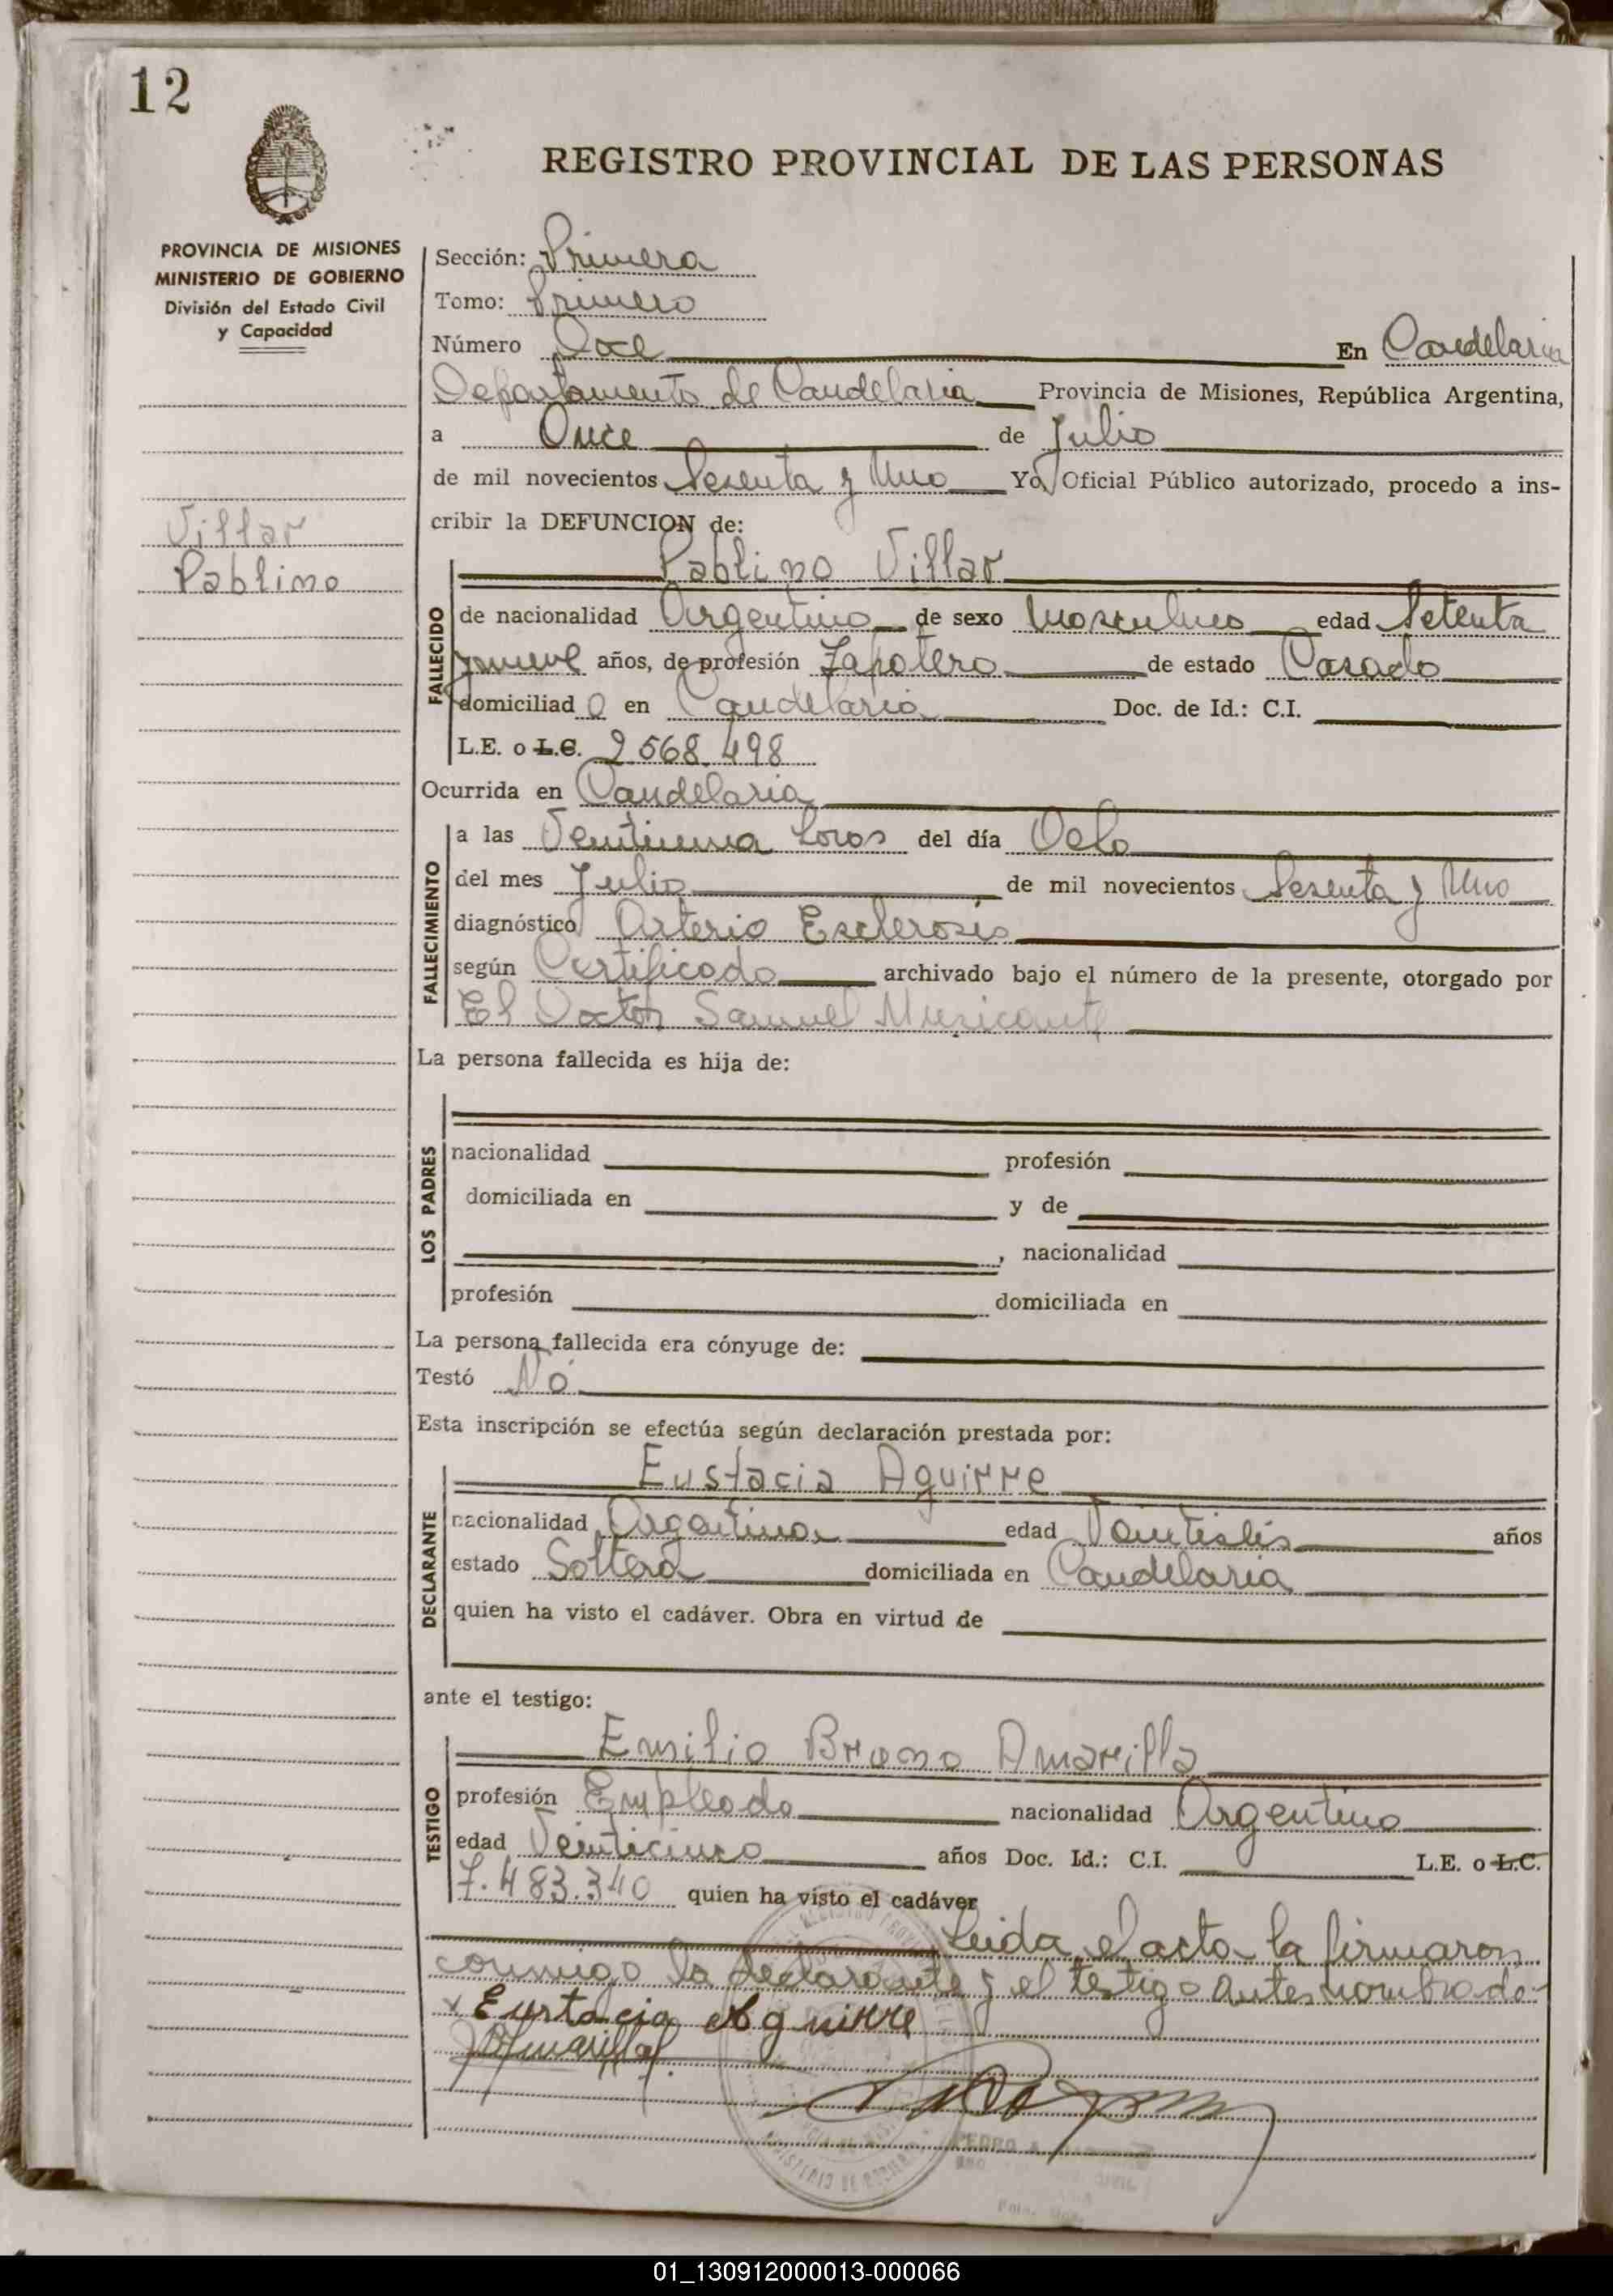 12
REGISTRO PROVINCIAL DE LAS PERSONAS
PROVINCIA DE MISIONES
MINISTERIO DE GOBIERNO
División del Estado Civil
y Capacidad
Villar
Pablino
Sección: Primera
Tomo: Primero
Número Doce En Candelaria
Departamento de Candelaria Provincia de Misiones, República Argentina,
a Once de Julio
de mil novecientos Sesenta y Uno Yo, Oficial Público autorizado, procedo a ins-
cribir la DEFUNCION de:
Pablino Villar
FALLECIDO
de nacionalidad Argentino de sexo Masculino edad Setenta
y nueve años, de profesión Zapatero de estado Casado
domiciliad o en Candelaria Doc. de Id.: C.I.
L.E. o L.C. 2.568.498
Ocurrida en Candelaria
FALLECIMIENTO
a las Ventiuna horas del día Ocho
del mes Julio de mil novecientos Sesenta y Uno
diagnóstico Arterio Esclerosis
según Certificado archivado bajo el número de la presente, otorgado por
El Doctor Samuel Musicante
La persona fallecida es hija de:
LOS PADRES
nacionalidad profesión
domiciliada en y de
, nacionalidad
profesión domiciliada en
La persona fallecida era cónyuge de:
Testó No
Esta inscripción se efectúa según declaración prestada por:
Eustacia Aguirre
DECLARANTE
nacionalidad Argentina edad años
estado Soltera domiciliada en Candelaria
quien ha visto el cadáver. Obra en virtud de
ante el testigo:
Emilio Bruno Amarilla
TESTIGO
profesión Empleado nacionalidad Argentino
edad Veinticinco años Doc. Id.: C.I. L.E. o L.C.
7.483.340 quien ha visto el cadáver
Leida el acta la firmaron
conmigo la declarante y el testigo antes nombrado-
x Eustacia Aguirre
PEDRO
01_130912000013-000066